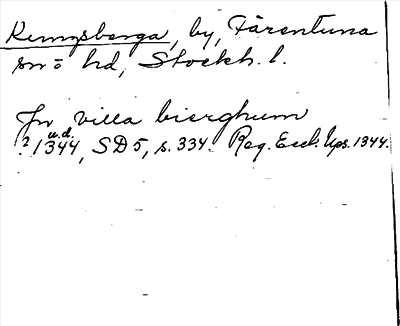 Kungsberga, by, Färentuna
sn o hd, Stockh. l.
Jn villa bierghum
u.d.
? 1344, SD 5, s. 334. Reg. Eccl. Ups. 1344.